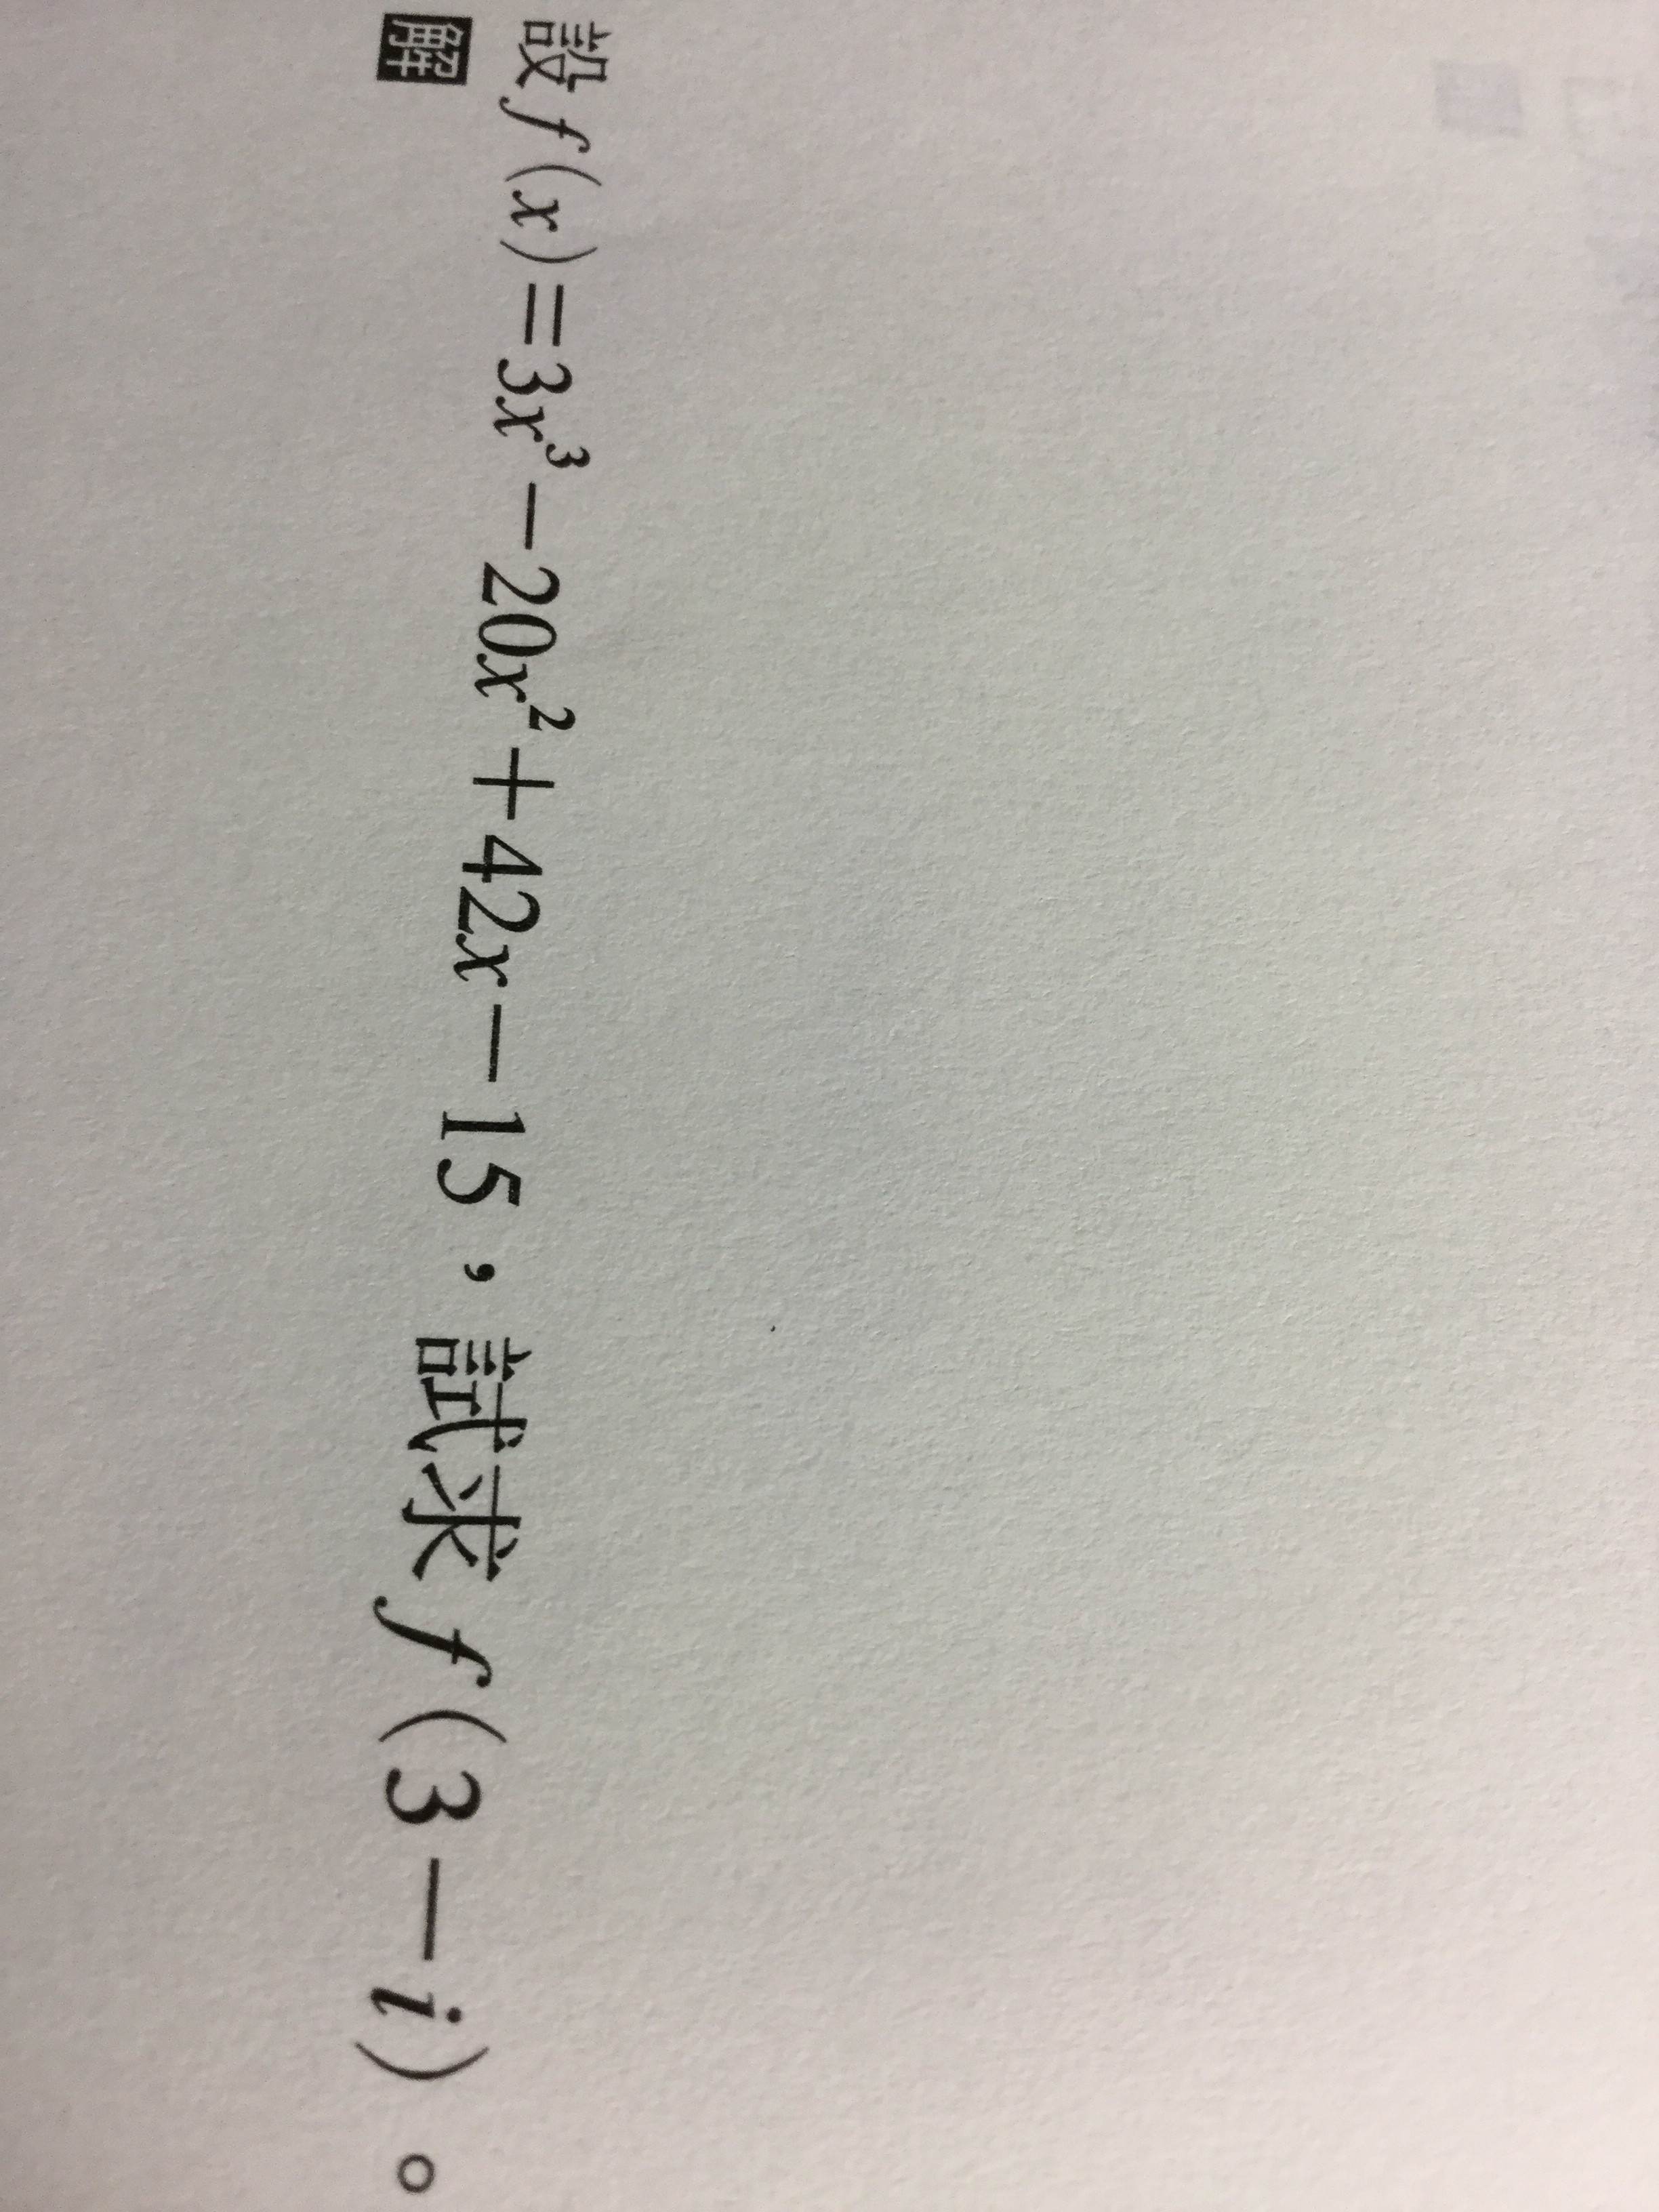 設 f(x)=3x³−20x²+42x−15，試求 f(3−i)。
解